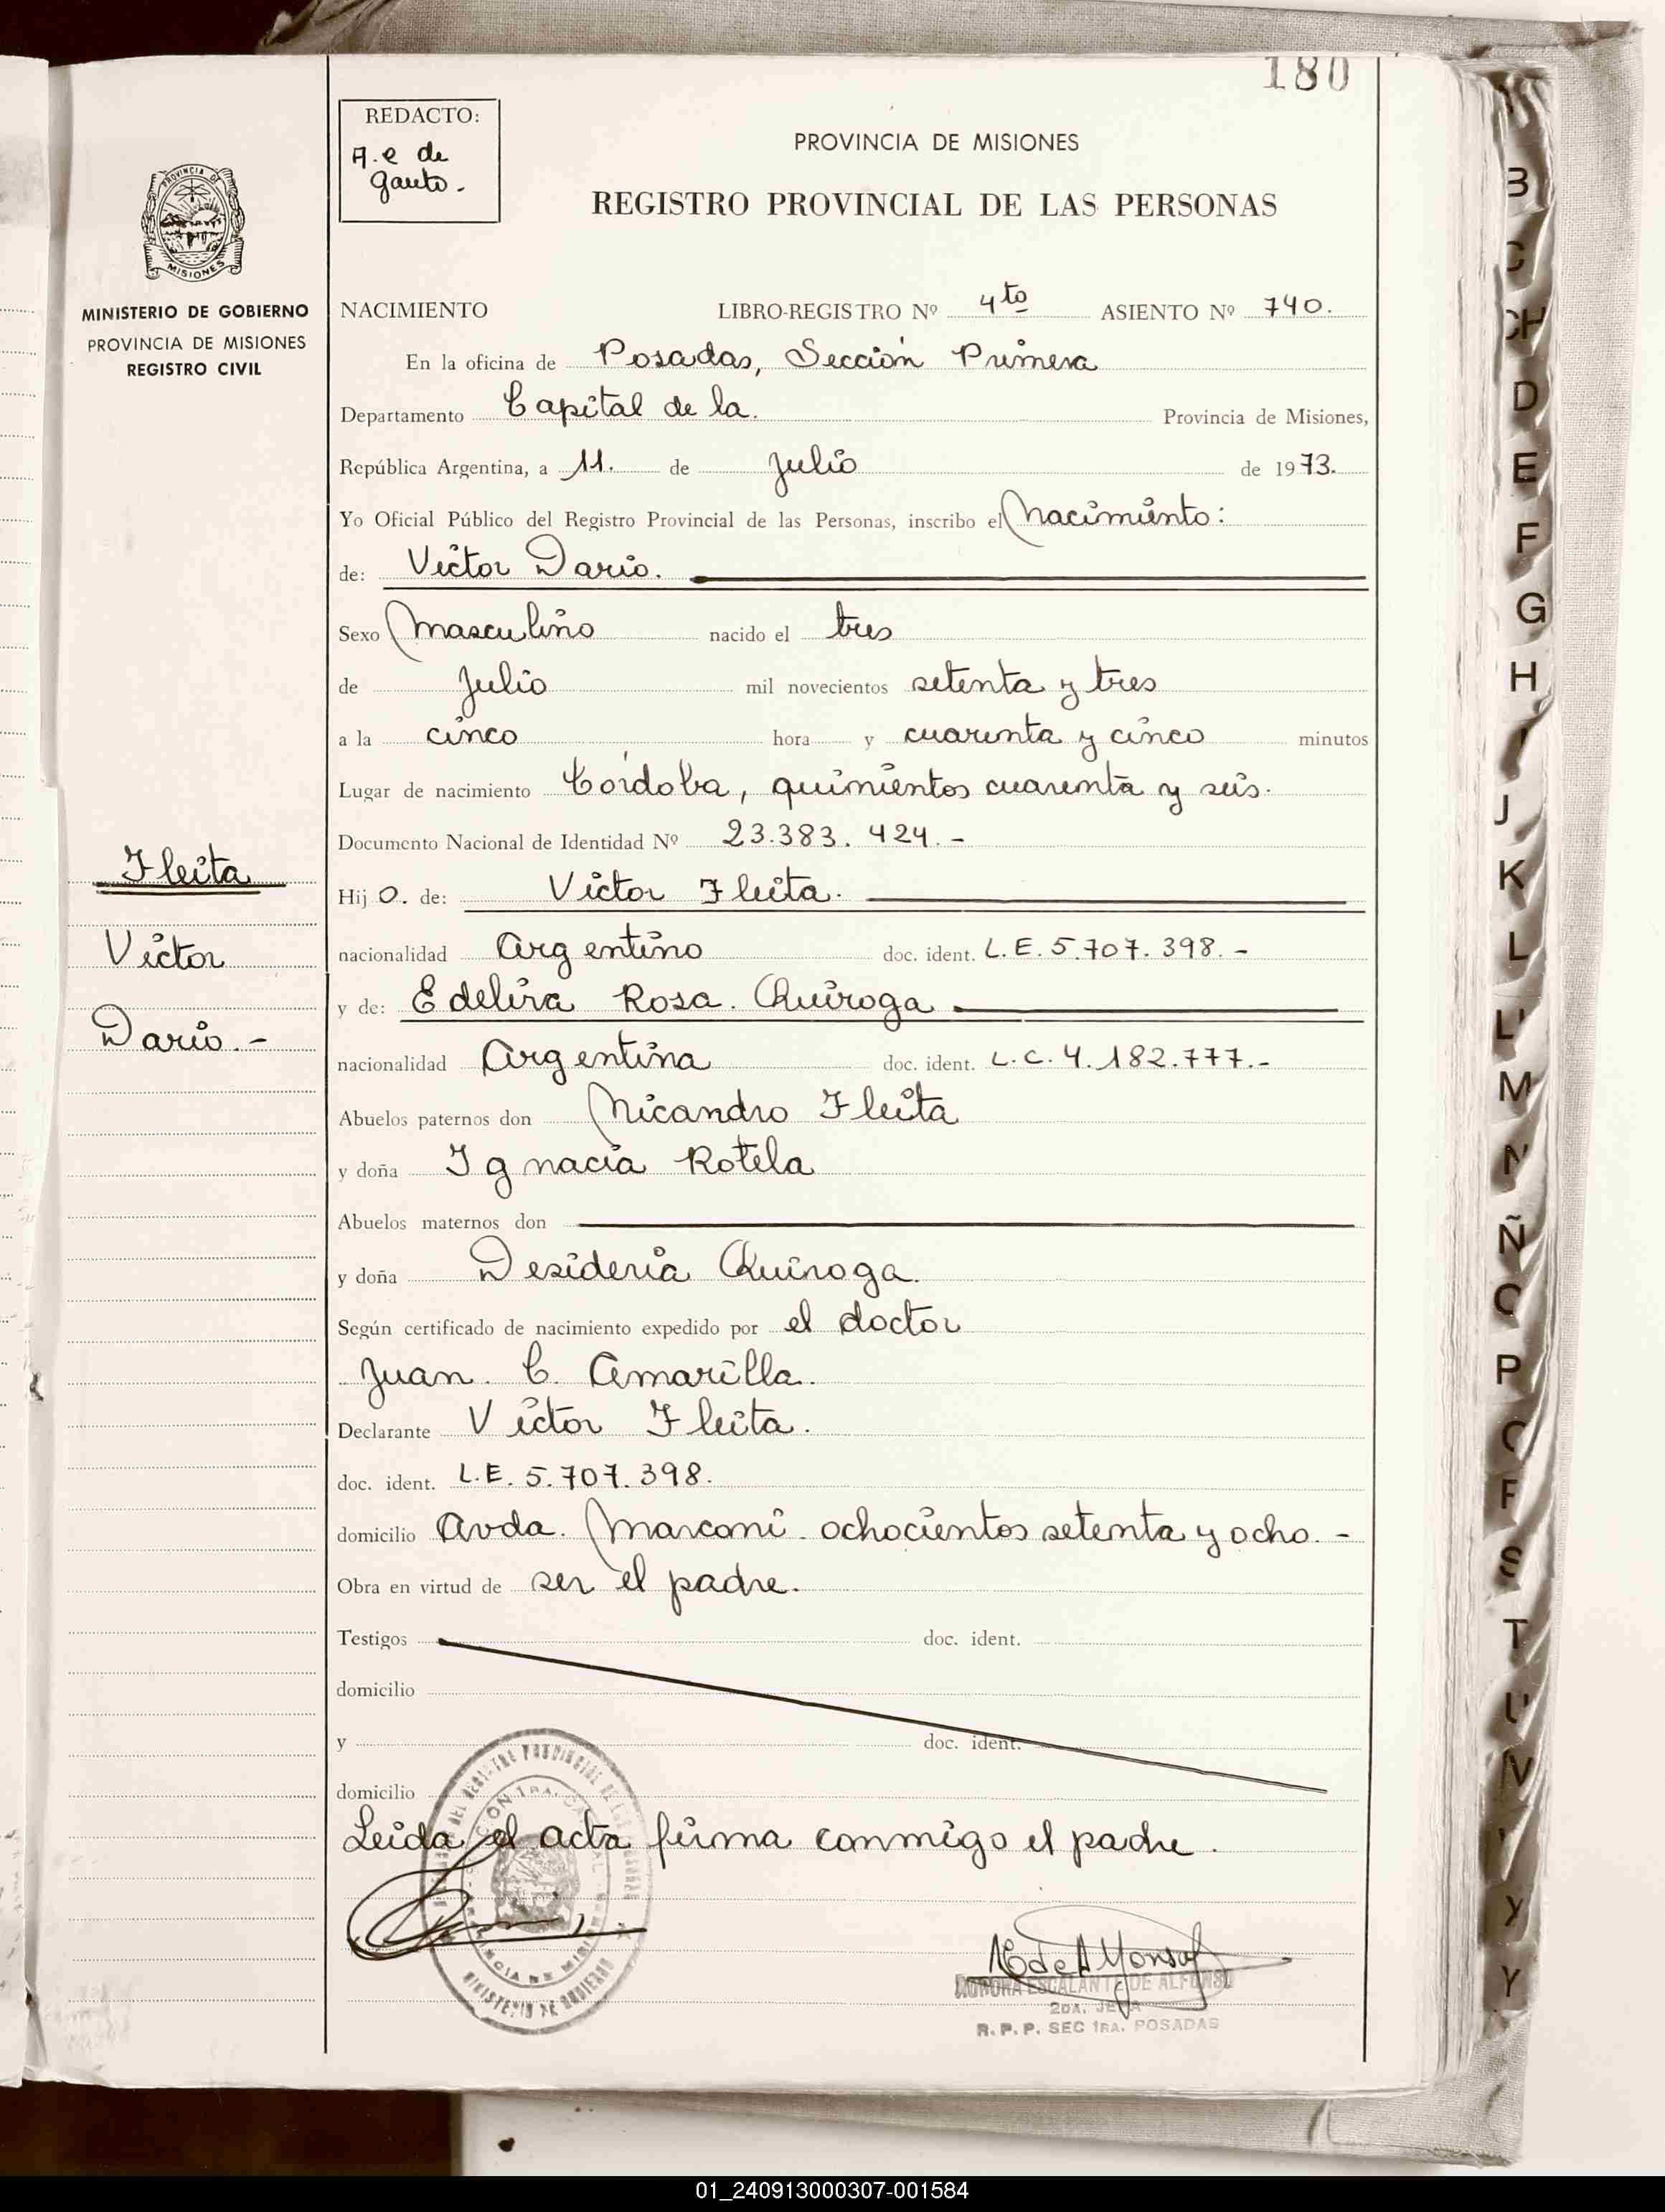 180
REDACTO:
A. e de
gauto.-
PROVINCIA DE MISIONES
REGISTRO PROVINCIAL DE LAS PERSONAS
PROVINCIA DE
MISIONES
MINISTERIO DE GOBIERNO
PROVINCIA DE MISIONES
REGISTRO CIVIL
NACIMIENTO LIBRO-REGISTRO Nº 4to ASIENTO Nº 740.
En la oficina de Posadas, Sección Primera
Departamento Capital de la. Provincia de Misiones,
República Argentina, a 11. de Julio de 1973.
Yo Oficial Público del Registro Provincial de las Personas, inscribo el Nacimiento:
de: Victor Dario.
Sexo Masculino nacido el tres
de Julio mil novecientos setenta y tres
a la cinco hora y cuarenta y cinco minutos
Lugar de nacimiento Córdoba, quinientos cuarenta y seis.
Documento Nacional de Identidad Nº 23.383.424.-
Hij o. de: Victor Fleita.
nacionalidad Argentino doc. ident. L.E. 5.707.398.-
y de: Edelira Rosa. Quiroga
nacionalidad Argentina doc. ident. L.C. 4.182.777.-
Abuelos paternos don Nicandro Fleita
y doña Ignacia Rotela
Abuelos maternos don
y doña Desideria Quiroga.
Según certificado de nacimiento expedido por el doctor
Juan. C. Amarilla.
Declarante Victor Fleita.
doc. ident. L.E. 5.707.398.
domicilio Avda. Marconi ochocientos setenta y ocho.-
Obra en virtud de ser el padre.
Testigos doc. ident.
domicilio
y doc. ident.
domicilio
Leida el acta firma conmigo el padre.
Fleita
Victor
Dario.-
ESCALANTE DE ALFONSO
2DA. JEFA
R. P. P. SEC 1RA. POSADAS
MINISTERIO DE GOBIERNO
B
C
CH
D
E
F
G
H
I
J
K
L
M
N
Ñ
O
P
S
T
U
V
Y
01_240913000307-001584